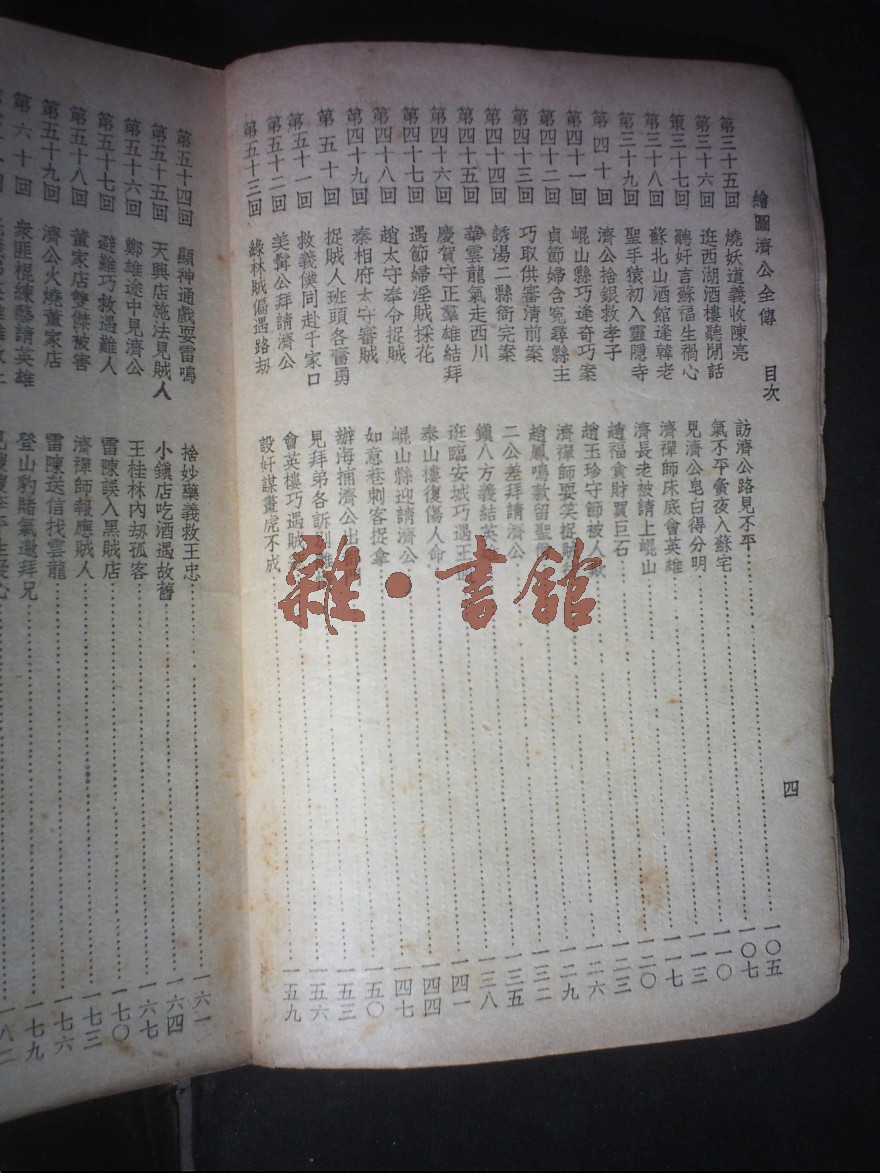 繪圖濟公全傳　目次　四
第三十五回　燒妖道義收陳亮　訪濟公路見不平……一〇五
第三十六回　逛西湖酒樓聽閒話　氣不平黌夜入蘇宅……一〇七
第三十七回　聽奸言蘇福生禍心　見濟公皂白得分明……一一〇
第三十八回　蘇北山酒館逢韓老　濟禪師床底會英雄……一一三
第三十九回　聖手猿初入靈隱寺　濟長老被請上崐山……一一七
第四十回　濟公捨銀救孝子　趙福貪財買巨石……一二〇
第四十一回　崐山縣巧逢奇巧案　趙玉珍守節被人欺……一二三
第四十二回　貞節婦含寃尋縣主　濟禪師耍笑捉賊……一二六
第四十三回　巧取供審清前案　趙鳳鳴款留聖……一二九
第四十四回　誘湯二縣衙完案　二公差拜請濟公……一三二
第四十五回　華雲龍氣走西川　鎮八方義結英……一三五
第四十六回　慶賀守正羣雄結拜　逛臨安城巧遇王……一三八
第四十七回　遇節婦淫賊採花　泰山樓復傷人命……一四一
第四十八回　趙太守奉令捉賊　崐山縣迎請濟公……一四四
第四十九回　秦相府太守審賊　如意巷刺客捉拿……一四七
第五十回　捉賊人班頭各奮勇　辦海捕濟公出……一五〇
第五十一回　救義僕同赴千家口　見拜弟各訴別……一五三
第五十二回　美髯公拜請濟公　會英樓巧遇賊……一五六
第五十三回　綠林賊偏遇路劫　設奸謀畫虎不成……一五九
第五十四回　顯神通戲耍雷鳴　捨妙藥義救王忠……一六一
第五十五回　天興店施法見賊人　小鎮店吃酒遇故舊……一六四
第五十六回　鄭雄途中見濟公　王桂林內劫孤客……一六七
第五十七回　避難巧救遇難人　雷陳誤入黑賊店……一七〇
第五十八回　董家店雙傑被害　濟禪師報應賊人……一七三
第五十九回　濟公火燒董家店　雷陳送信找雲龍……一七六
第六十回　衆匪棍練藝請英雄　登山豹賭氣邀拜兄……一七九
雜·書館